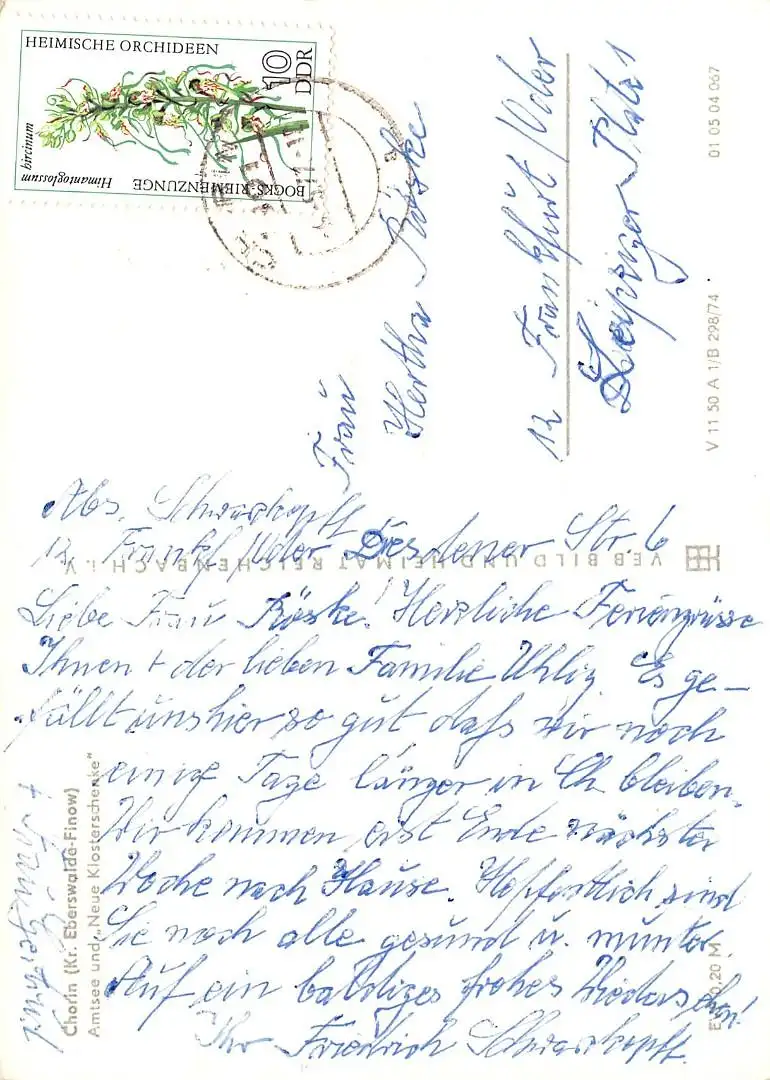 HEIMISCHE ORCHIDEEN
10
DDR
BOCKS-RIEMENZUNGE
Himantoglossum
hircinum
Frau
Hertha Röske
12 Frankfurt/Oder
Leipziger Platz 1
01 05 04 067
V 11 50 A 1/B 298/74
VEB BILD UND HEIMAT REICHENBACH i. V.
Abs. Schwarzkopff
12 Frankf/Oder Dresdener Str. 6
Liebe Frau Röske! Herzliche Feriengrüsse
Ihnen + der lieben Familie Uhlig. Es ge-
fällt uns hier so gut daß wir noch
einige Tage länger in Ch bleiben.
Wir kommen erst Ende nächster
Woche nach Hause. Hoffentlich sind
Sie noch alle gesund u. munter.
Auf ein baldiges frohes Wiedersehen!
Ihr Friedrich Schwarzkopff.
Chorin (Kr. Eberswalde-Finow)
Amtsee und „Neue Klosterschenke"